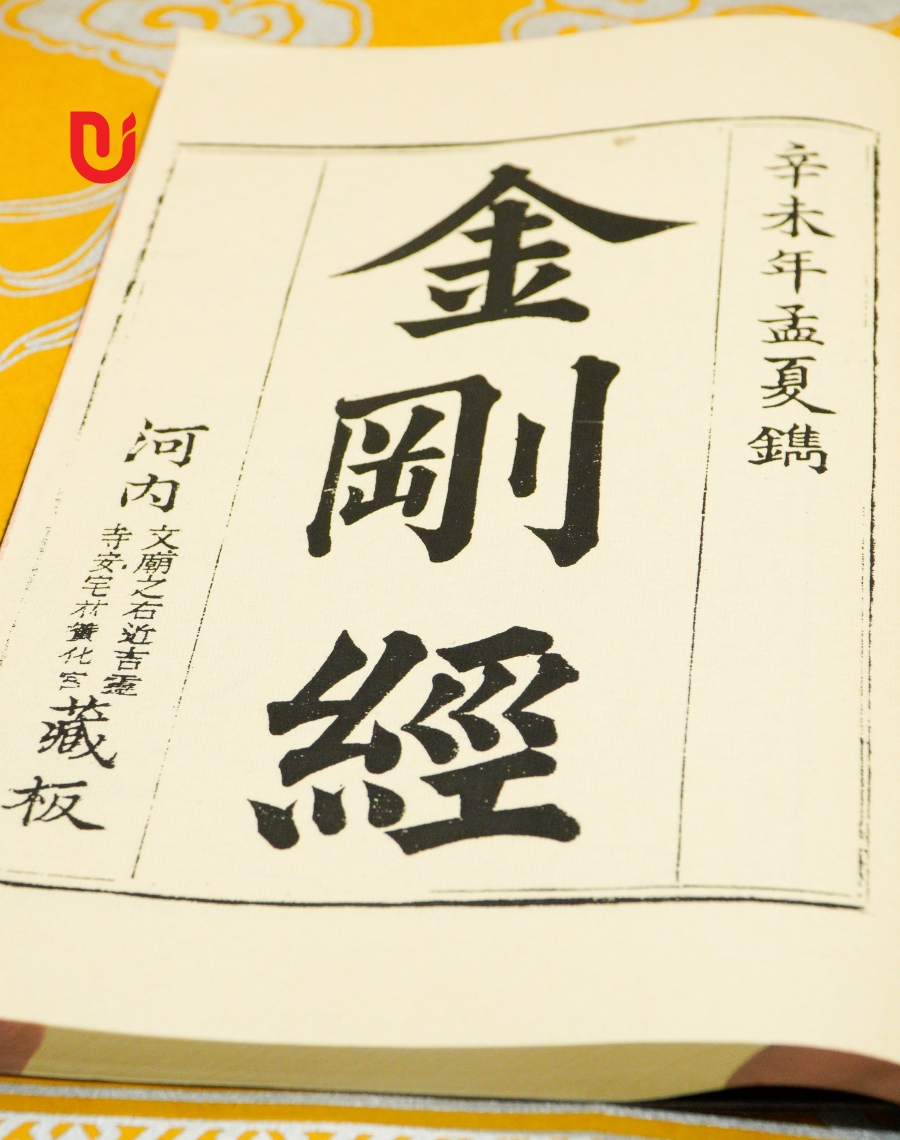 辛未年孟夏鐫
金剛經
河内
文廟之右近吉靈
寺安宅村 化宮
藏板